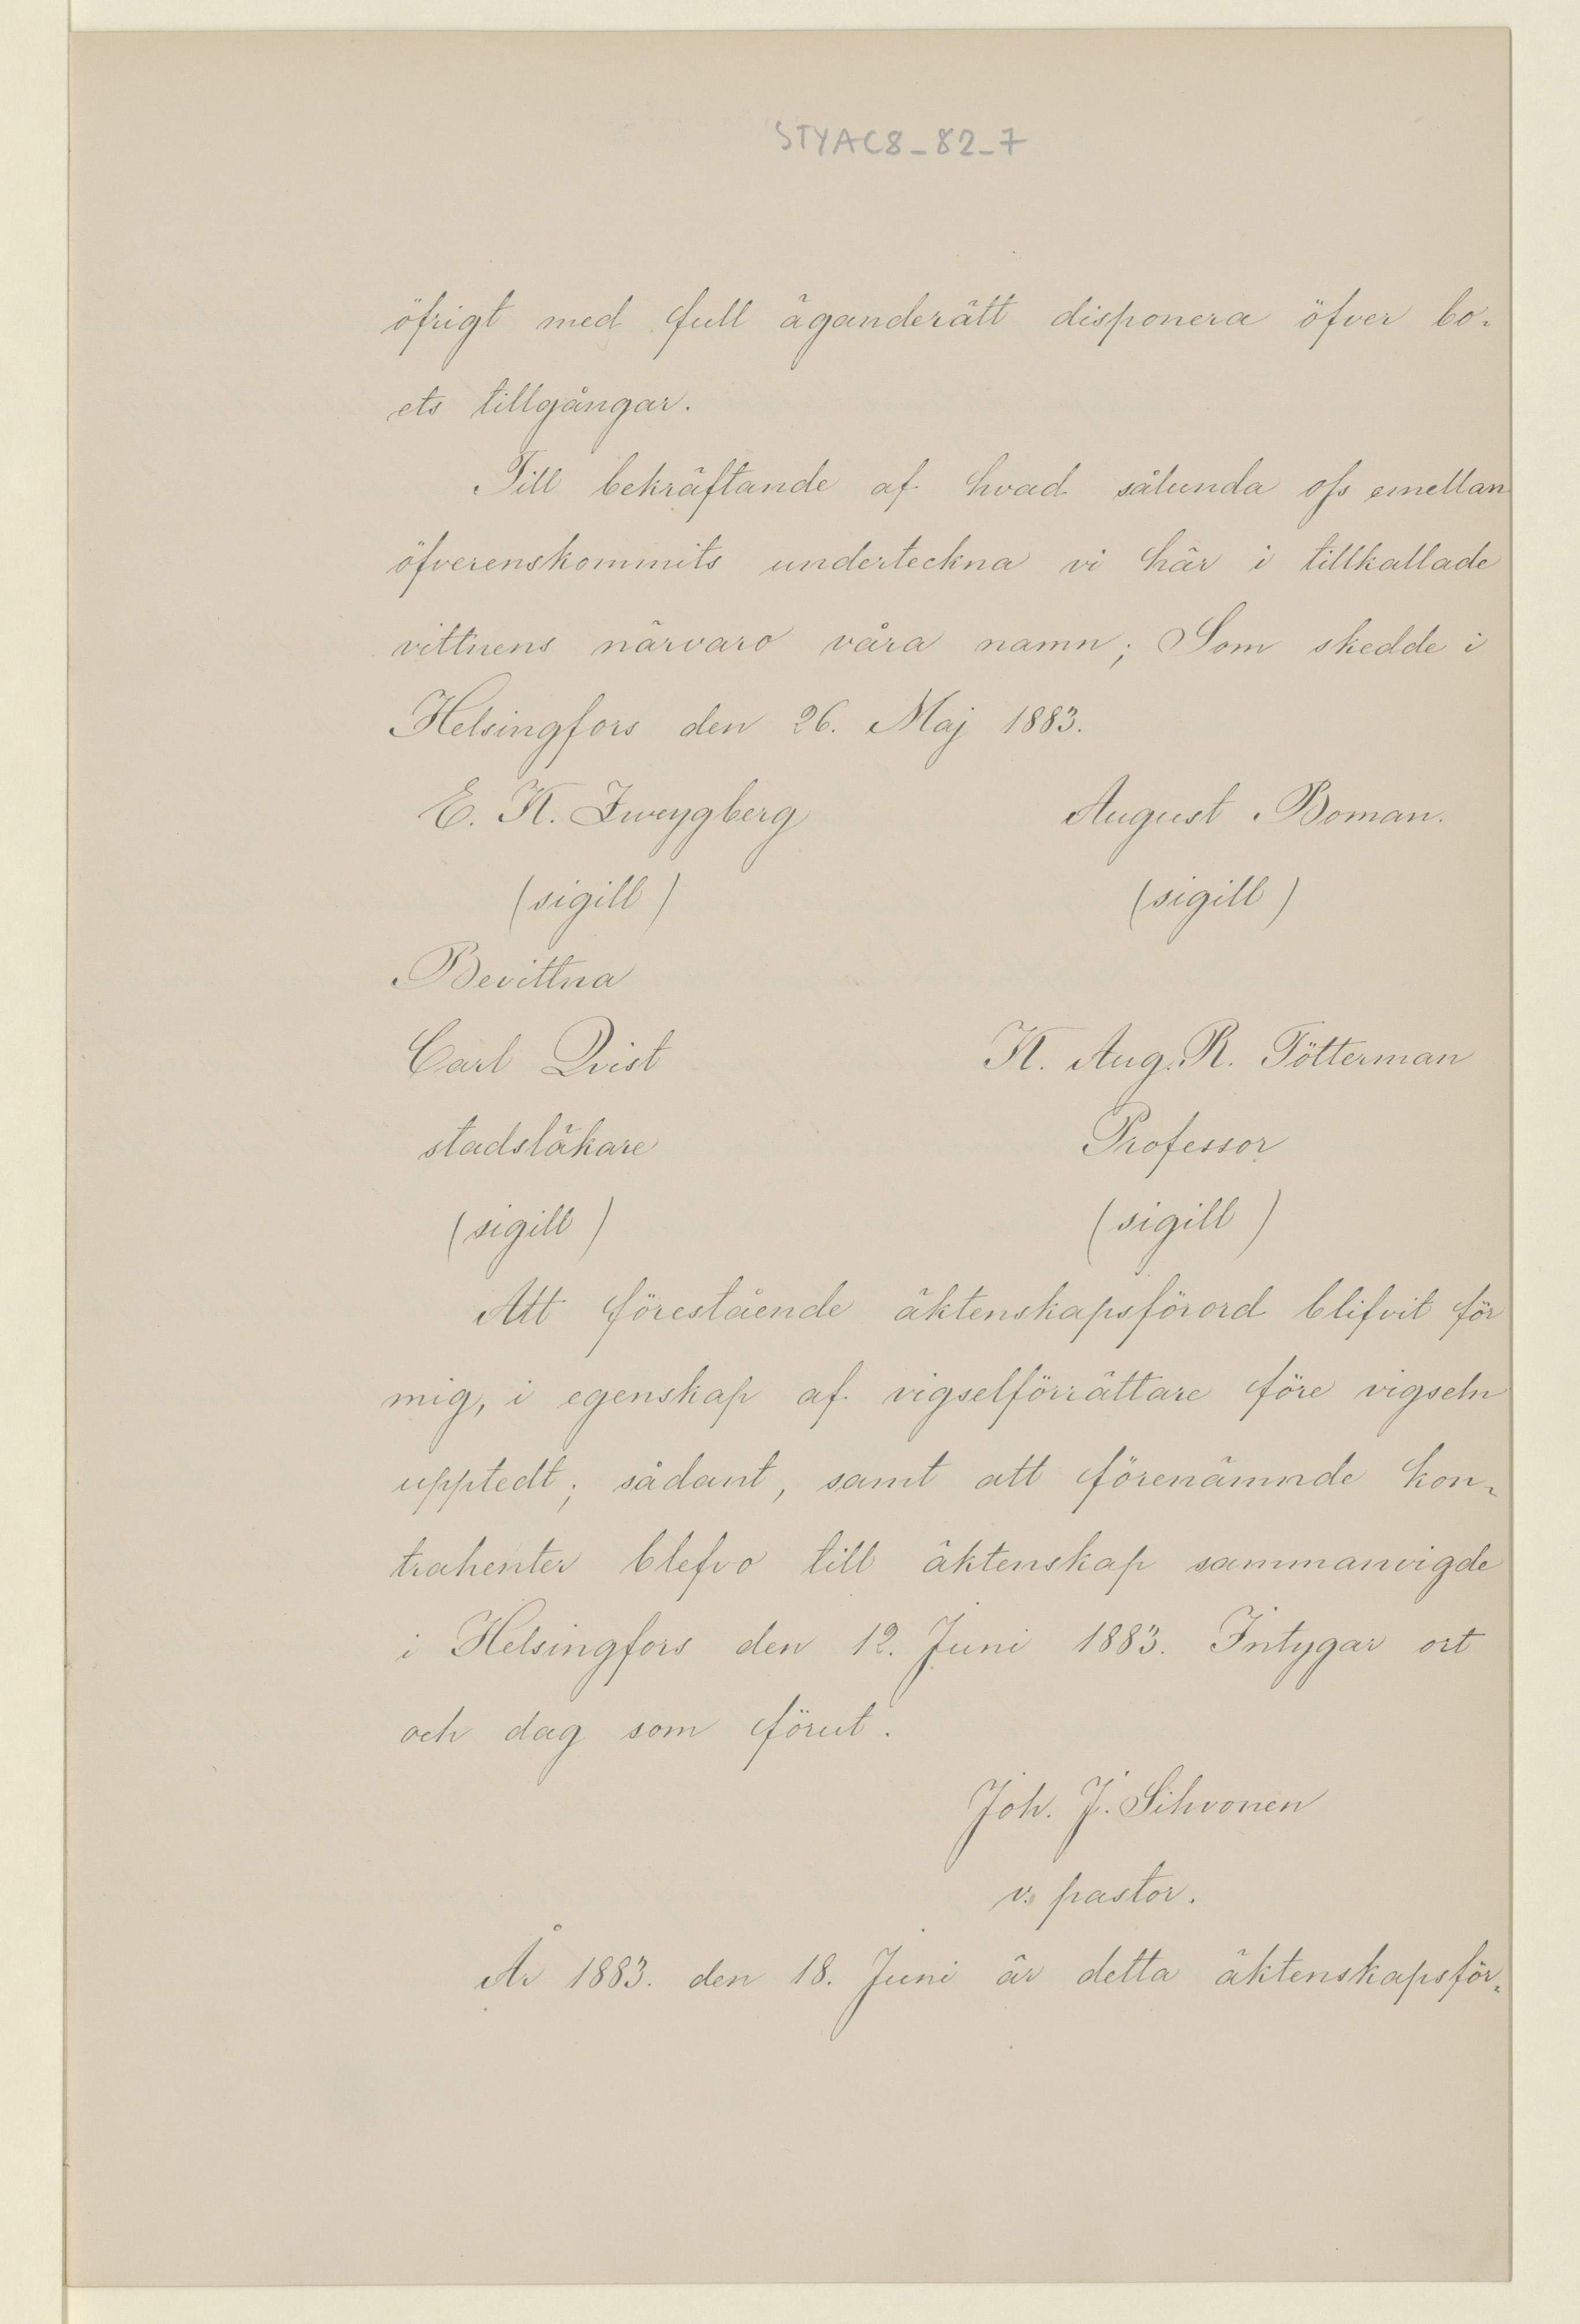 STYAC8_82_7
öfrigt med full äganderätt disponera öfver bo-
ets tillgångar.
Till bekräftande af hvad sålunda oss emellan
öfverenskommits underteckna vi här i tillkallade
vittnens närvaro våra namn; Som skedde i
Helsingfors den 26. Maj 1883.
E. K. Zweygberg August Boman.
(sigill) (sigill)
Bevittna
Carl Qvist K. Aug. R. Tötterman
stadsläkare Professor
(sigill) (sigill)
Att förestående äktenskapsförord blifvit för
mig, i egenskap af vigselförrättare före vigseln
upptedt; sådant, samt att förenämnde kon-
trahenter blefvo till äktenskap sammanvigde
i Helsingfors den 12. Juni 1883. Intygar ort
och dag som förut.
Joh. J. Sihvonen
v. pastor.
År 1883. den 18. Juni är detta äktenskapsför-